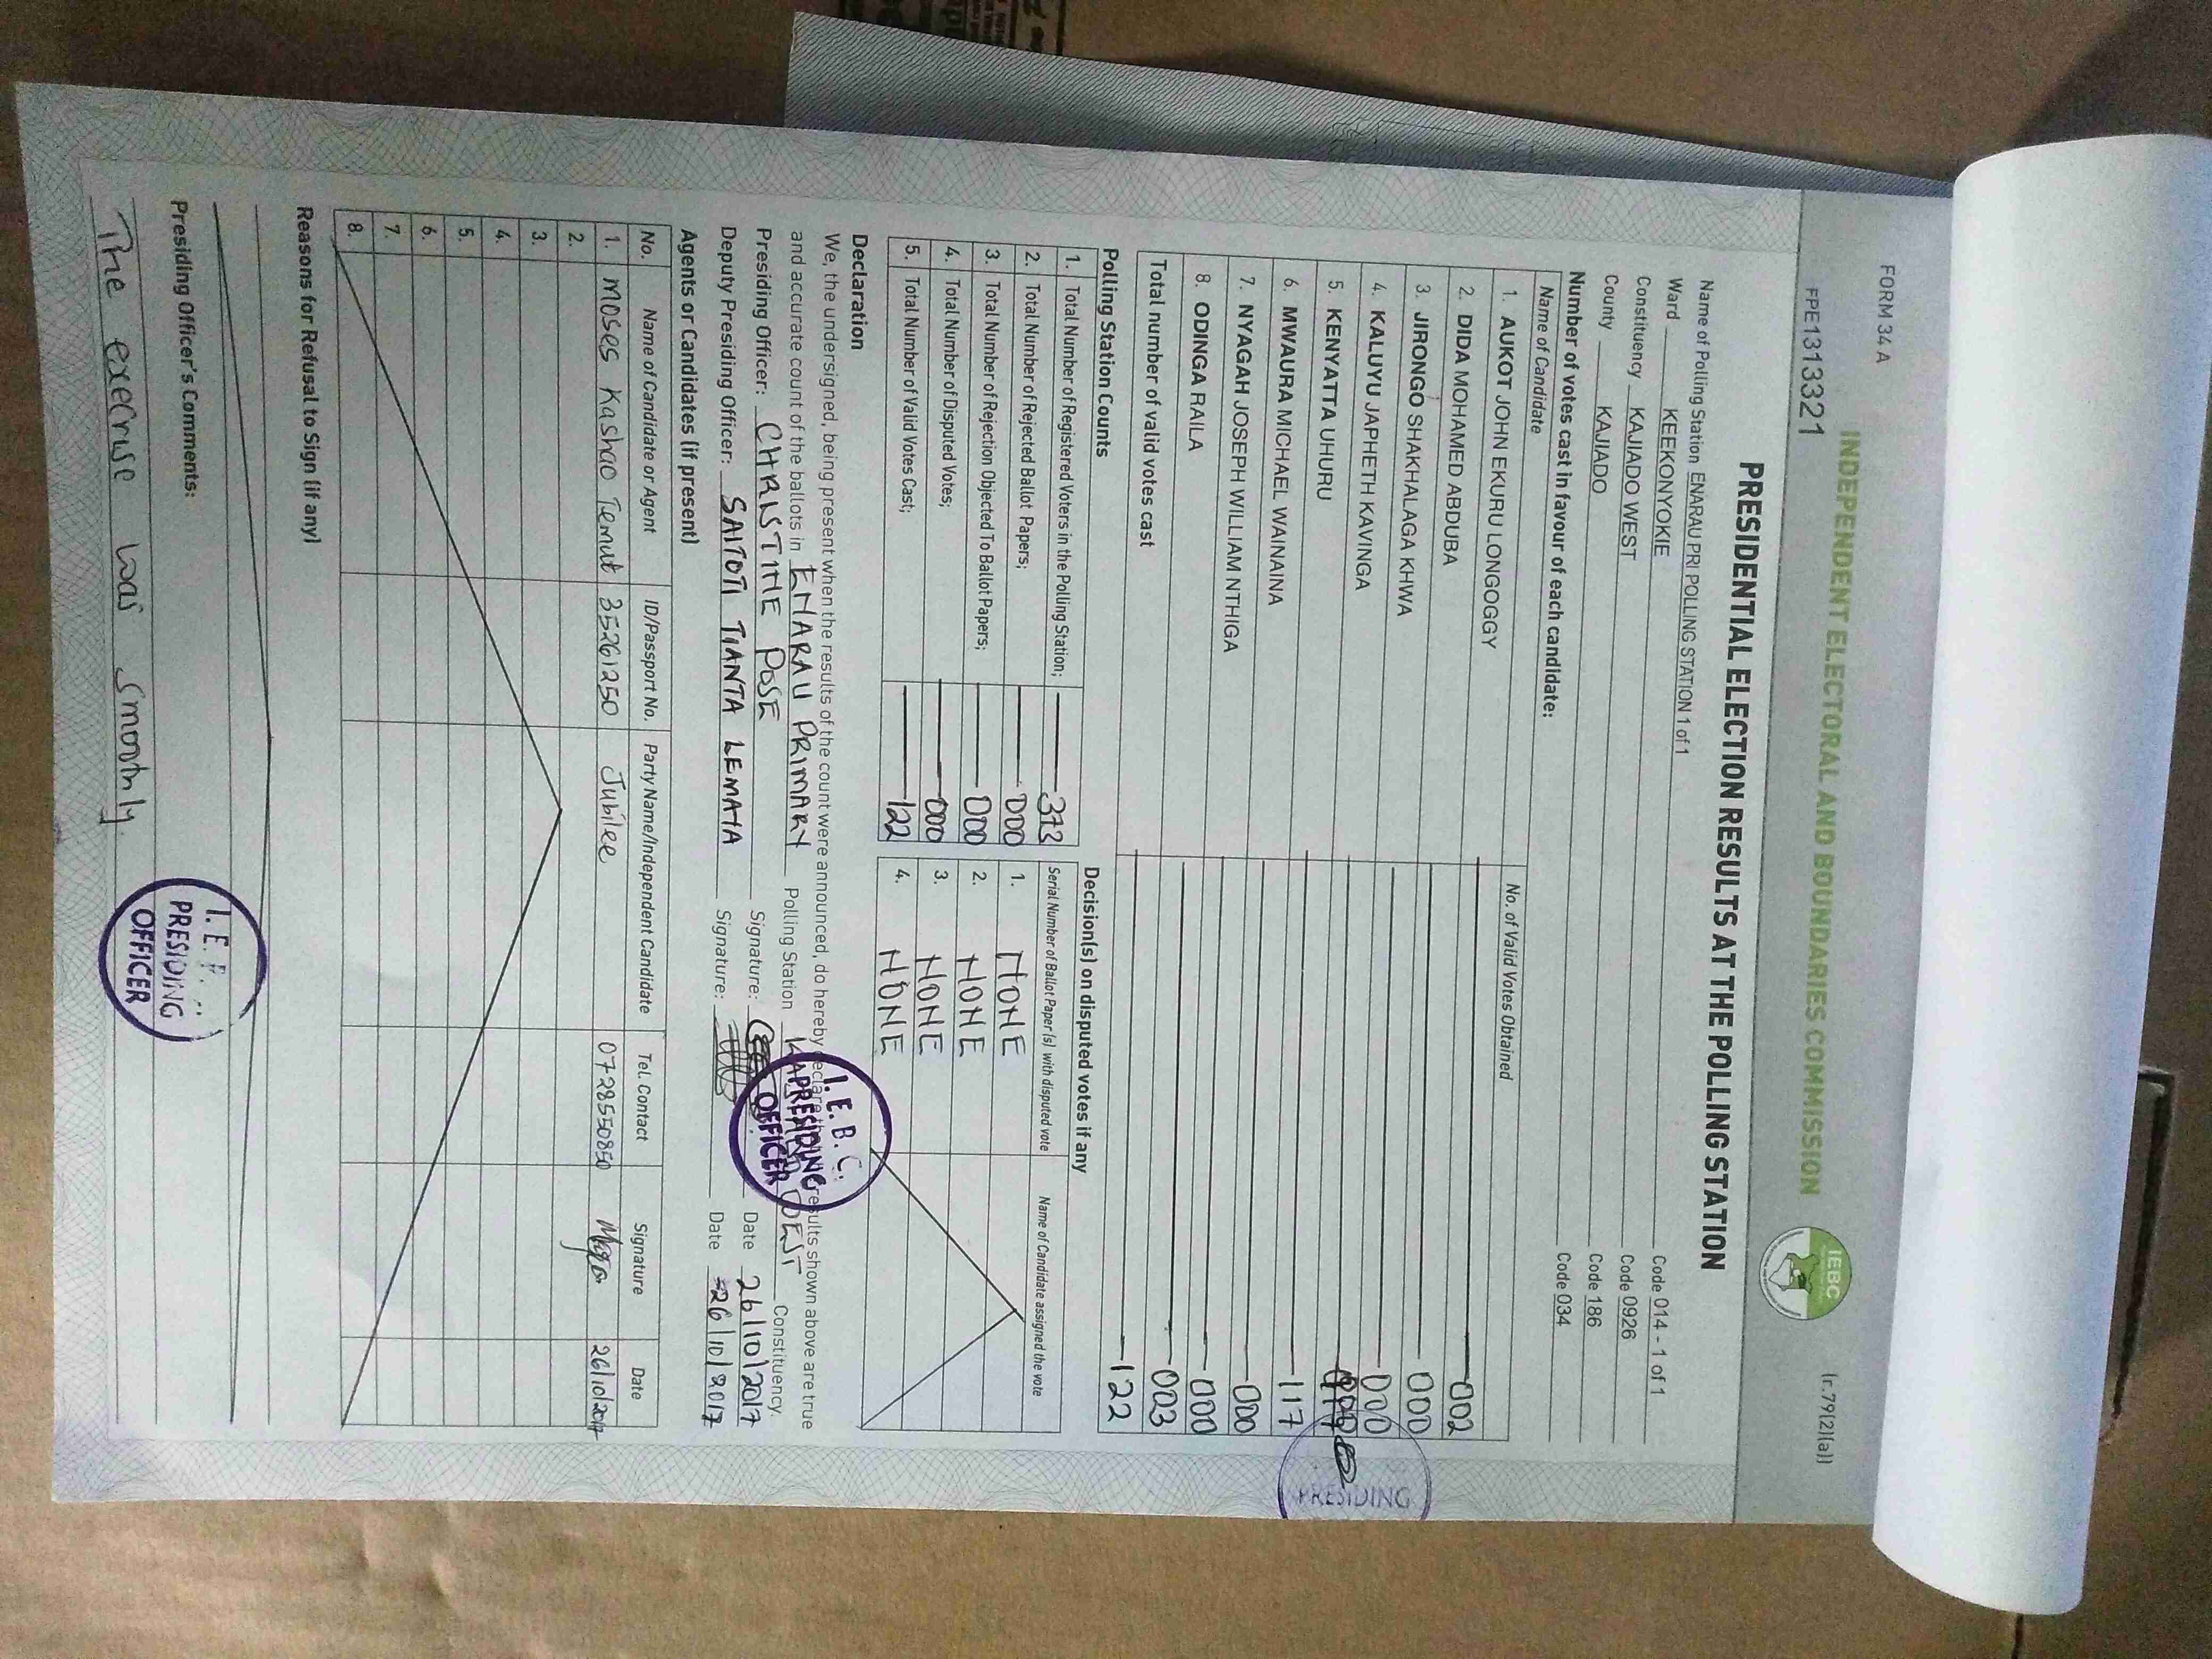 FORM 34 A
(r.79(2)(a))
INDEPENDENT ELECTORAL AND BOUNDARIES COMMISSION
IEBC
FPE1313321
PRESIDENTIAL ELECTION RESULTS AT THE POLLING STATION
Name of Polling Station ENARAU PRI POLLING STATION 1 of 1 Code 014 - 1 of 1
Ward KEEKONYOKIE Code 0926
Constituency KAJIADO WEST Code 186
County KAJIADO Code 034
Number of votes cast in favour of each candidate:
Name of Candidate No. of Valid Votes Obtained
1. AUKOT JOHN EKURU LONGOGGY 002
2. DIDA MOHAMED ABDUBA 000
3. JIRONGO SHAKHALAGA KHWA 000
4. KALUYU JAPHETH KAVINGA
5. KENYATTA UHURU 117
6. MWAURA MICHAEL WAINAINA 000
7. NYAGAH JOSEPH WILLIAM NTHIGA 000
8. ODINGA RAILA 003
Total number of valid votes cast 122
PRESIDING
Polling Station Counts
1. Total Number of Registered Voters in the Polling Station; 373
2. Total Number of Rejected Ballot Papers; 000
3. Total Number of Rejection Objected To Ballot Papers; 000
4. Total Number of Disputed Votes; 000
5. Total Number of Valid Votes Cast; 122
Decision(s) on disputed votes if any
Serial Number of Ballot Paper(s) with disputed vote Name of Candidate assigned the vote
1. NONE
2. NONE
3. NONE
4. NONE
Declaration
We, the undersigned, being present when the results of the count were announced, do hereby declare that the results shown above are true
and accurate count of the ballots in ENARAU PRIMARY Polling Station WEST Constituency.
Presiding Officer: CHRISTINE POSE Signature: Date 26/10/2017
Deputy Presiding Officer: SAITOTI TIANTA LEMAIA Signature: Date 26/10/2017
I. E. B. C.
PRESIDING
OFFICER
Agents or Candidates (if present)
No. Name of Candidate or Agent ID/Passport No. Party Name/Independent Candidate Tel. Contact Signature Date
1. Moses Kashao Temut 35261250 Jubilee 0728550850 26/10/2017
2.
3.
4.
5.
6.
7.
8.
Reasons for Refusal to Sign (if any)
Presiding Officer's Comments:
The exercise was smoothly.
I. E. B. C.
PRESIDING
OFFICER